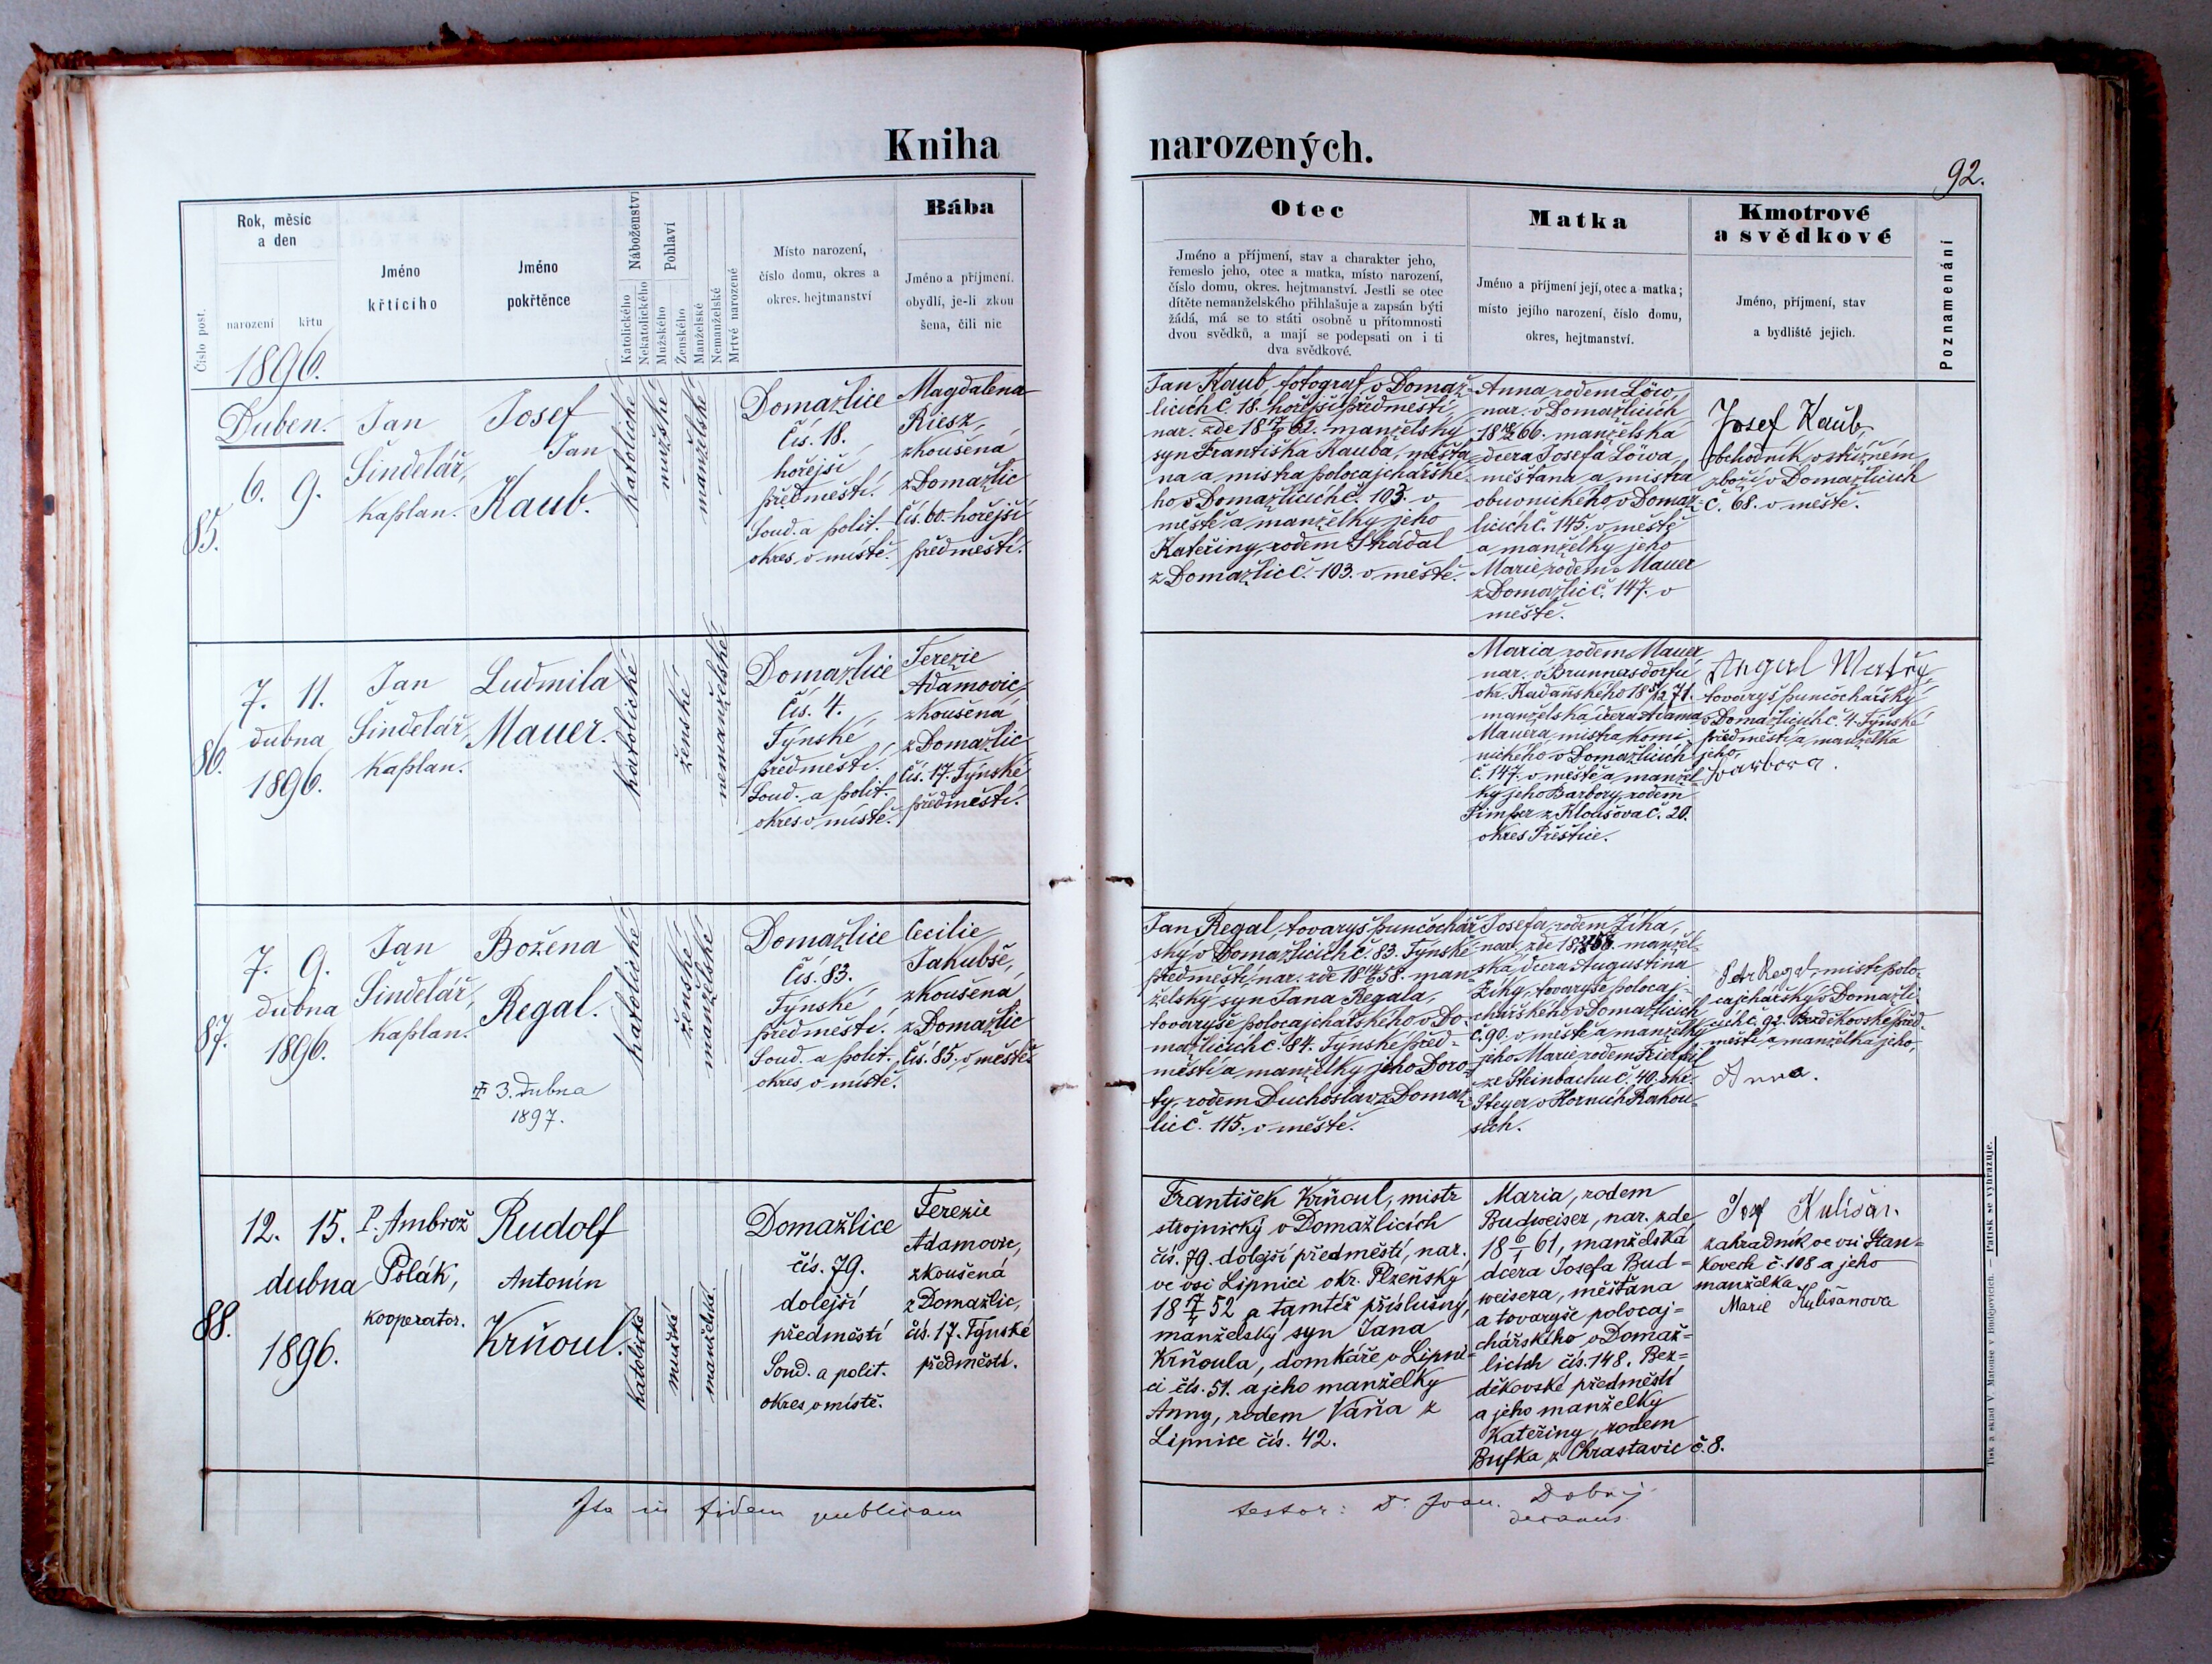 Kniha
narozených.
92.
Číslo post.
Rok, měsíc
a den
narození
křtu
1896.
Jméno
křtícího
Jméno
pokřtěnce
Náboženství
Katolického
Nekatolického
Pohlaví
Mužského
Ženského
Manželské
Nemanželské
Mrtvě narozené
Místo narození,
číslo domu, okres a
okres. hejtmanství
Bába
Jméno a příjmení.
obydlí, je-li zkou
šena, čili nic
Otec
Jméno a příjmení, stav a charakter jeho,
řemeslo jeho, otec a matka, místo narození,
číslo domu, okres. hejtmanství. Jestli se otec
dítěte nemanželského přihlašuje a zapsán býti
žádá, má se to státi osobně u přítomnosti
dvou svědků, a mají se podepsati on i ti
dva svědkové.
Matka
Jméno a příjmení její, otec a matka;
místo jejího narození, číslo domu,
okres, hejtmanství.
Kmotrové
a svědkové
Jméno, příjmení, stav
a bydliště jejich.
Poznamenání
85.
Duben.
6. 9.
Jan
Šindelář,
kaplan.
Josef
Jan
Kaub.
katolické
mužské
manželské
Domažlice
Čís. 18.
hořejší
předměstí.
Soud. a polit.
okres v místě.
Magdalena
Riesz,
zkoušená
z Domažlic
čís. 60. hořejší
předměstí.
Jan Kaub, fotograf v Domaž-
licích č. 18. hořejší předměstí,
nar. zde 62. manželský
syn Františka Kauba, měšťa-
na a mistra polocajchářské-
ho v Domažlicích č. 103. v
městě a manželky jeho
Kateřiny, rodem Strádal
z Domažlic č. 103. v městě.
Anna rodem Löw,
nar. v Domažlicích
66. manželská
dcera Josefa Löwa,
měšťana a mistra
obuvnického v Domaž-
licích č. 145. v městě
a manželky jeho
Marie, rodem Mauer
z Domažlic č. 147. v
městě.
Josef Kaub,
obchodník v střižném
zboží v Domažlicích
č. 68. v městě.
86.
7. 11.
dubna
1896.
Jan
Šindelář,
kaplan.
Ludmila
Mauer.
katolické
ženské
nemanželské
Domažlice
Čís. 4.
Týnské
předměstí.
Soud. a polit.
okres v místě.
Terezie
Adamovic,
zkoušená
z Domažlic
čís. 17. Týnské
předměstí.
Maria rodem Mauer
nar. v Brunnersdorfu
okr. Kadaňského 71.
manželská dcera Adama
Mauera, mistra komi-
nického v Domažlicích
č. 147. v městě a manžel-
ky jeho Barbory, rodem
z Kloušova č. 20.
okres Přeštice.
tovaryš punčochářský
v Domažlicích č. 4. Týnské
předměstí a manželka
jeho
Barbora.
87.
7. 9.
dubna
1896.
Jan
Šindelář,
kaplan.
Božena
Regal.
3. dubna
1897.
katolické
ženské
manželské
Domažlice
Čís. 83.
Týnské
předměstí.
Soud. a polit.
okres v místě.
Cecilie
Jakubše,
zkoušená
z Domažlic
Čís. 85. v městě.
Jan Regal, tovaryš punčochář-
ský v Domažlicích č. 83. Týnské
předměstí, nar. zde 58. man-
želský syn Jana Regala,
tovaryše polocajchářského v Do-
mažlicích č. 84. Týnské před-
městí a manželky jeho Doro-
ty, rodem Duchoslav z Domaž-
lic č. 115. v městě.
Josefa, rodem Zíka,
nar. zde 58. manžel-
ská dcera Augustina
Zíky, tovaryše polocaj-
chářského v Domažlicích
č. 90. v městě a manželky
jeho Marie rodem
ze Steinbachu č. 40. okr.
Steyer v Horních Rakou-
sích.
Petr Regal, mistr polo-
cajchářský v Domažli-
cích č. 92. Bezděkovské před-
městí a manželka jeho,
Anna.
88.
12. 15.
dubna
1896.
P. Ambrož
Polák,
kooperator.
Rudolf
Antonín
Krňoul.
katolické
mužské
manželské
Domažlice
čís. 79.
dolejší
předměstí
Soud. a polit.
okres v místě.
Terezie
Adamovic,
zkoušená
z Domažlic,
čís. 17. Týnské
předměstí.
František Krňoul, mistr
strojnický v Domažlicích
čís. 79. dolejší předměstí, nar.
ve vsi Lipnici okr. Plzeňský
52 a tamtéž příslušný,
manželský syn Jana
Krňoula, domkáře v Lipni-
ci čís. 51. a jeho manželky
Anny, rodem Váňa z
Lipnice čís. 42.
Maria, rodem
Budweiser, nar. zde
18 6/1 61, manželská
dcera Josefa Bud=
weisera, měšťana
a tovaryše polocaj=
chářského v Domaž=
licích čís. 148. Bez=
děkovské předměstí
a jeho manželky
Kateřiny, rodem
Bufka z Chrastavic č. 8.
Kulišan.
zahradník ve vsi Stan=
kovech č. 108 a jeho
manželka
Marie Kulišanova
Ita in fidem publicam
testor: D. Joan. Dobrý
decanus.
Tisk a sklad V. Matouše v Budějovicích. — Patisk se vyhrazuje.